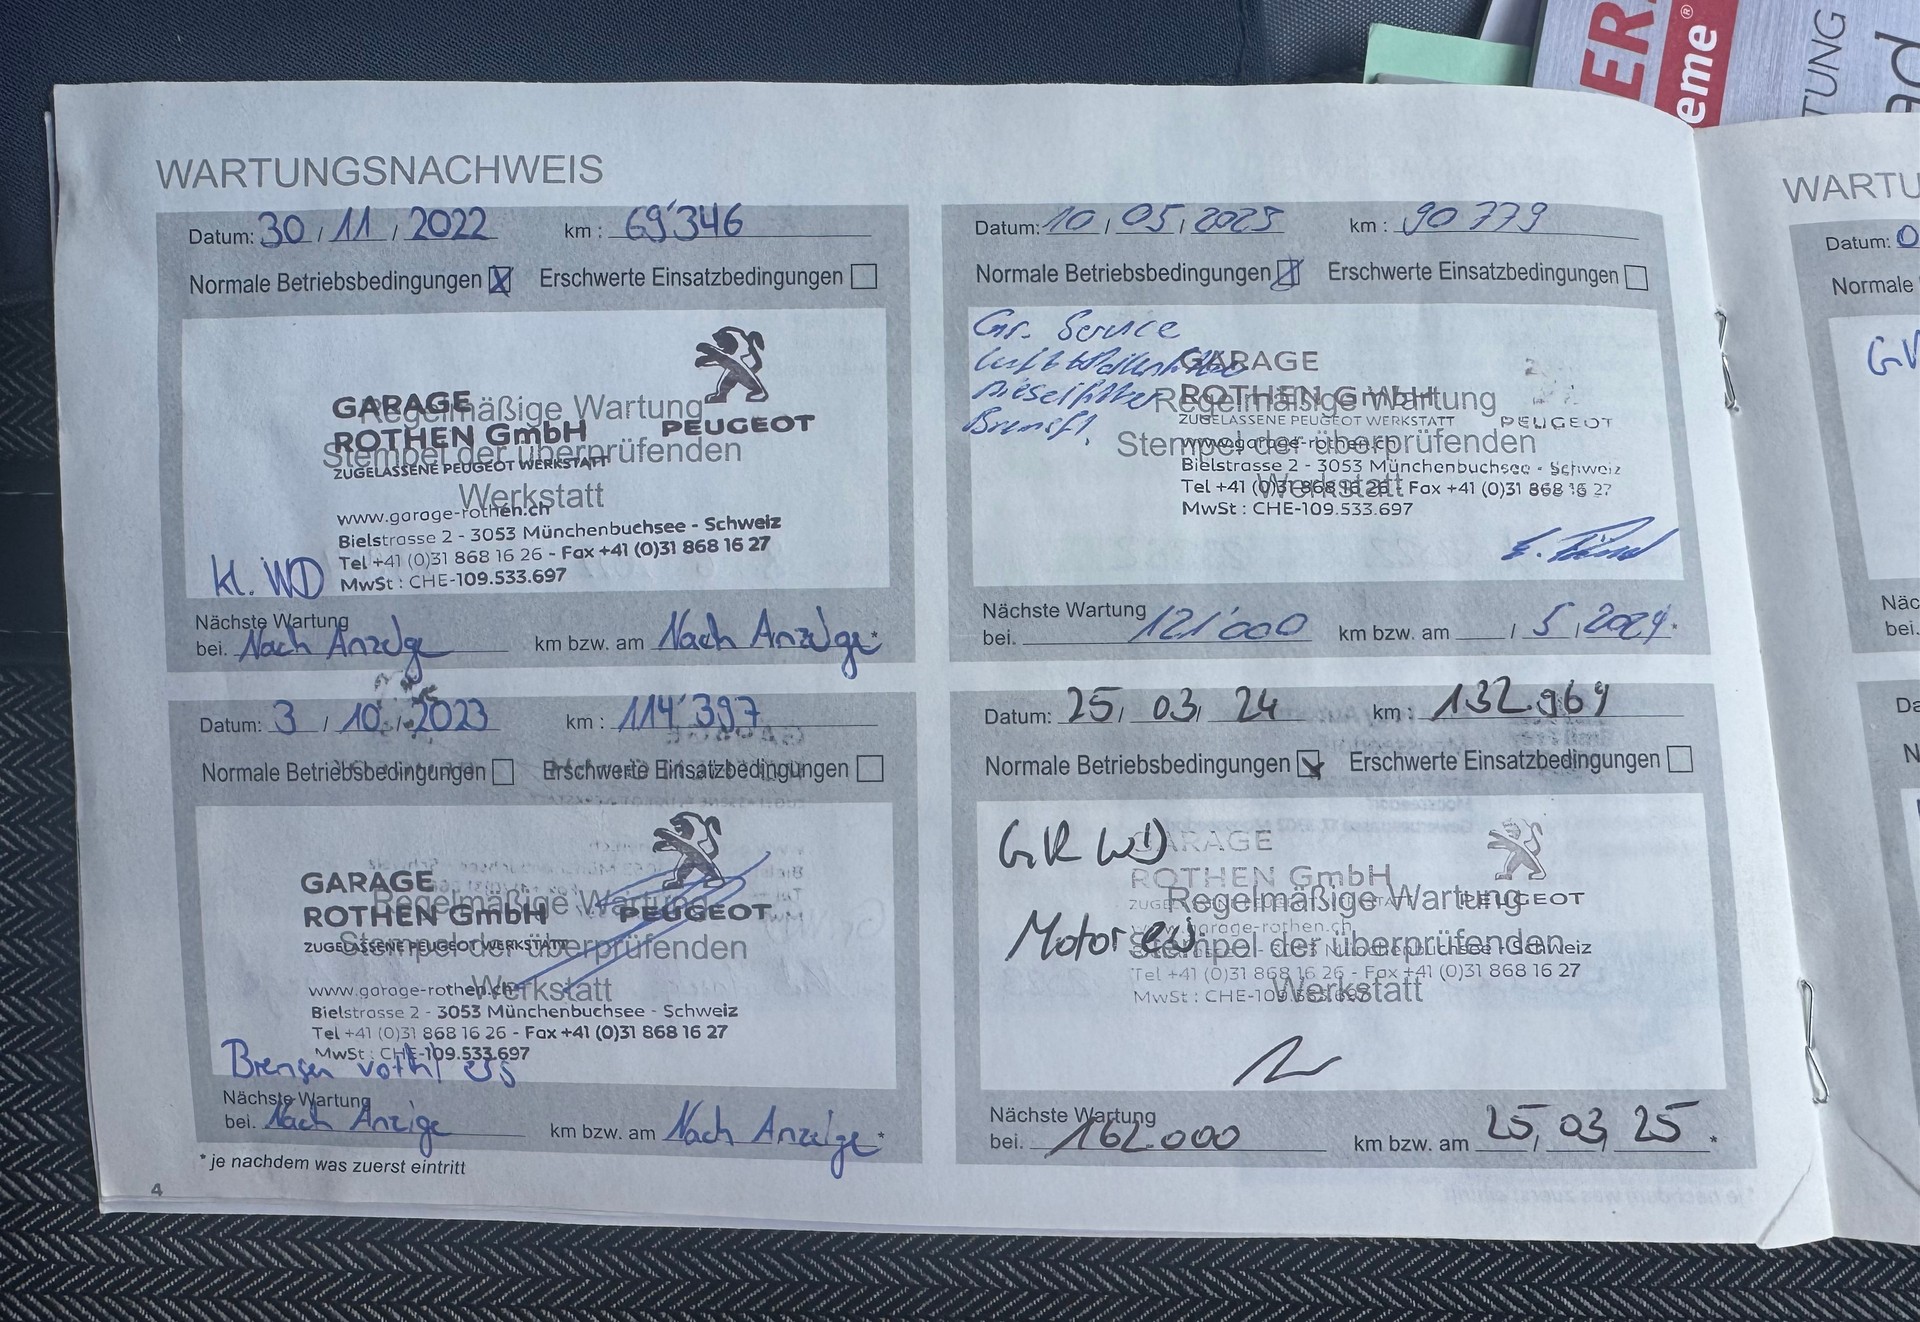 ER
eme®
TUNG
WARTUNGSNACHWEIS
Datum: 30 / 11 / 2022 km : 69'346
Normale Betriebsbedingungen Erschwerte Einsatzbedingungen
Regelmäßige Wartung
Stempel der überprüfenden
Werkstatt
GARAGE
ROTHEN GmbH
PEUGEOT
ZUGELASSENE PEUGEOT WERKSTATT
www.garage-rothen.ch
Bielstrasse 2 - 3053 Münchenbuchsee - Schweiz
Tel +41 (0)31 868 16 26 - Fax +41 (0)31 868 16 27
MwSt : CHE-109.533.697
kl. WD
Nächste Wartung
bei. Nach Anzeige km bzw. am Nach Anzeige *
Datum: 10 / 05 / 2023 km : 90 779
Normale Betriebsbedingungen Erschwerte Einsatzbedingungen
Gr. Service
Dieselfilter
Bremsfl.
Regelmäßige Wartung
Stempel der überprüfenden
Werkstatt
GARAGE
ROTHEN GmbH
ZUGELASSENE PEUGEOT WERKSTATT PEUGEOT
www.garage-rothen.ch
Bielstrasse 2 - 3053 Münchenbuchsee - Schweiz
Tel +41 (0)31 868 16 26 - Fax +41 (0)31 868 16 27
MwSt : CHE-109.533.697
Nächste Wartung
bei. 121'000 km bzw. am / 5 / 2024 *
Datum: 3 / 10 / 2023 km : 114'397
Normale Betriebsbedingungen Erschwerte Einsatzbedingungen
Regelmäßige Wartung
Stempel der überprüfenden
Werkstatt
GARAGE
ROTHEN GmbH PEUGEOT
ZUGELASSENE PEUGEOT WERKSTATT
www.garage-rothen.ch
Bielstrasse 2 - 3053 Münchenbuchsee - Schweiz
Tel +41 (0)31 868 16 26 - Fax +41 (0)31 868 16 27
MwSt : CHE-109.533.697
Nächste Wartung
bei. Nach Anzige km bzw. am Nach Anzeige *
* je nachdem was zuerst eintritt
4
Datum: 25 / 03 / 24 km : 132.969
Normale Betriebsbedingungen Erschwerte Einsatzbedingungen
GR WD
Motor
Regelmäßige Wartung
Stempel der überprüfenden
Werkstatt
GARAGE
ROTHEN GmbH
PEUGEOT
www.garage-rothen.ch
Bielstrasse 2 - 3053 Münchenbuchsee - Schweiz
Tel +41 (0)31 868 16 26 - Fax +41 (0)31 868 16 27
MwSt : CHE-109.533.697
Nächste Wartung
bei. 162.000 km bzw. am 25 / 03 / 25 *
WARTU
Datum: 0
Normale
Näc
bei.
Da
N